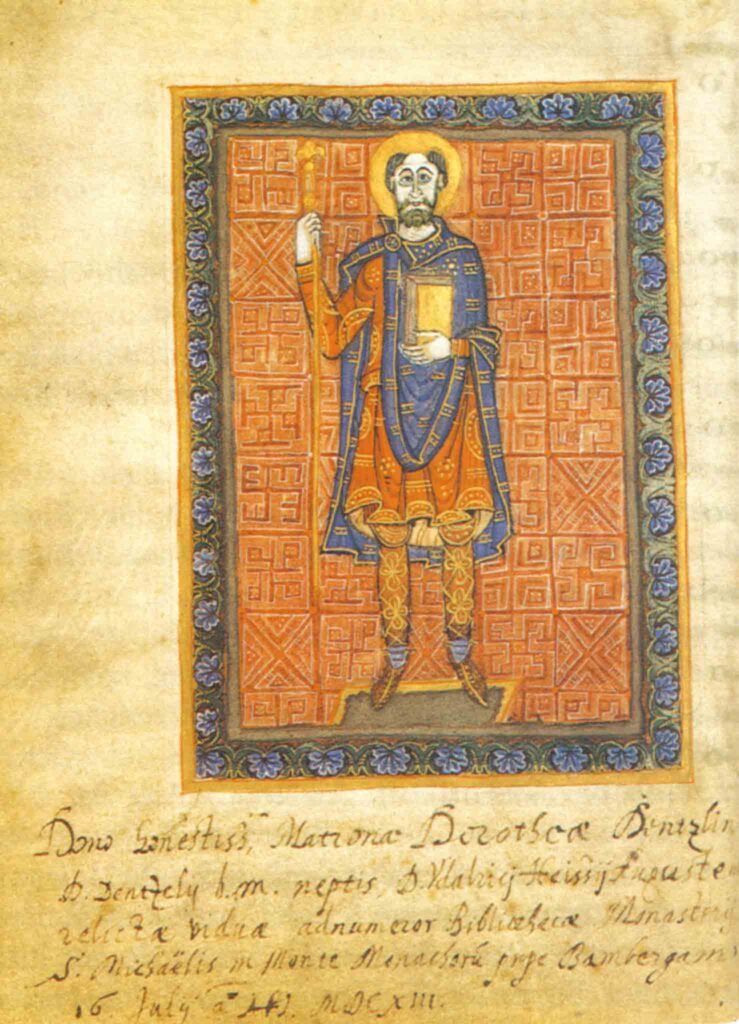 Dono honestiss, Matronæ Dorotheæ Dentzlin
D. Dentzely b. m. neptis, D. Vdalricj
relictæ viduæ adnumeror Bibliothecæ Monasterij
S. Michaëlis in Monte Monachorũ prpe Bambergam
16 July aº MDCXIII.